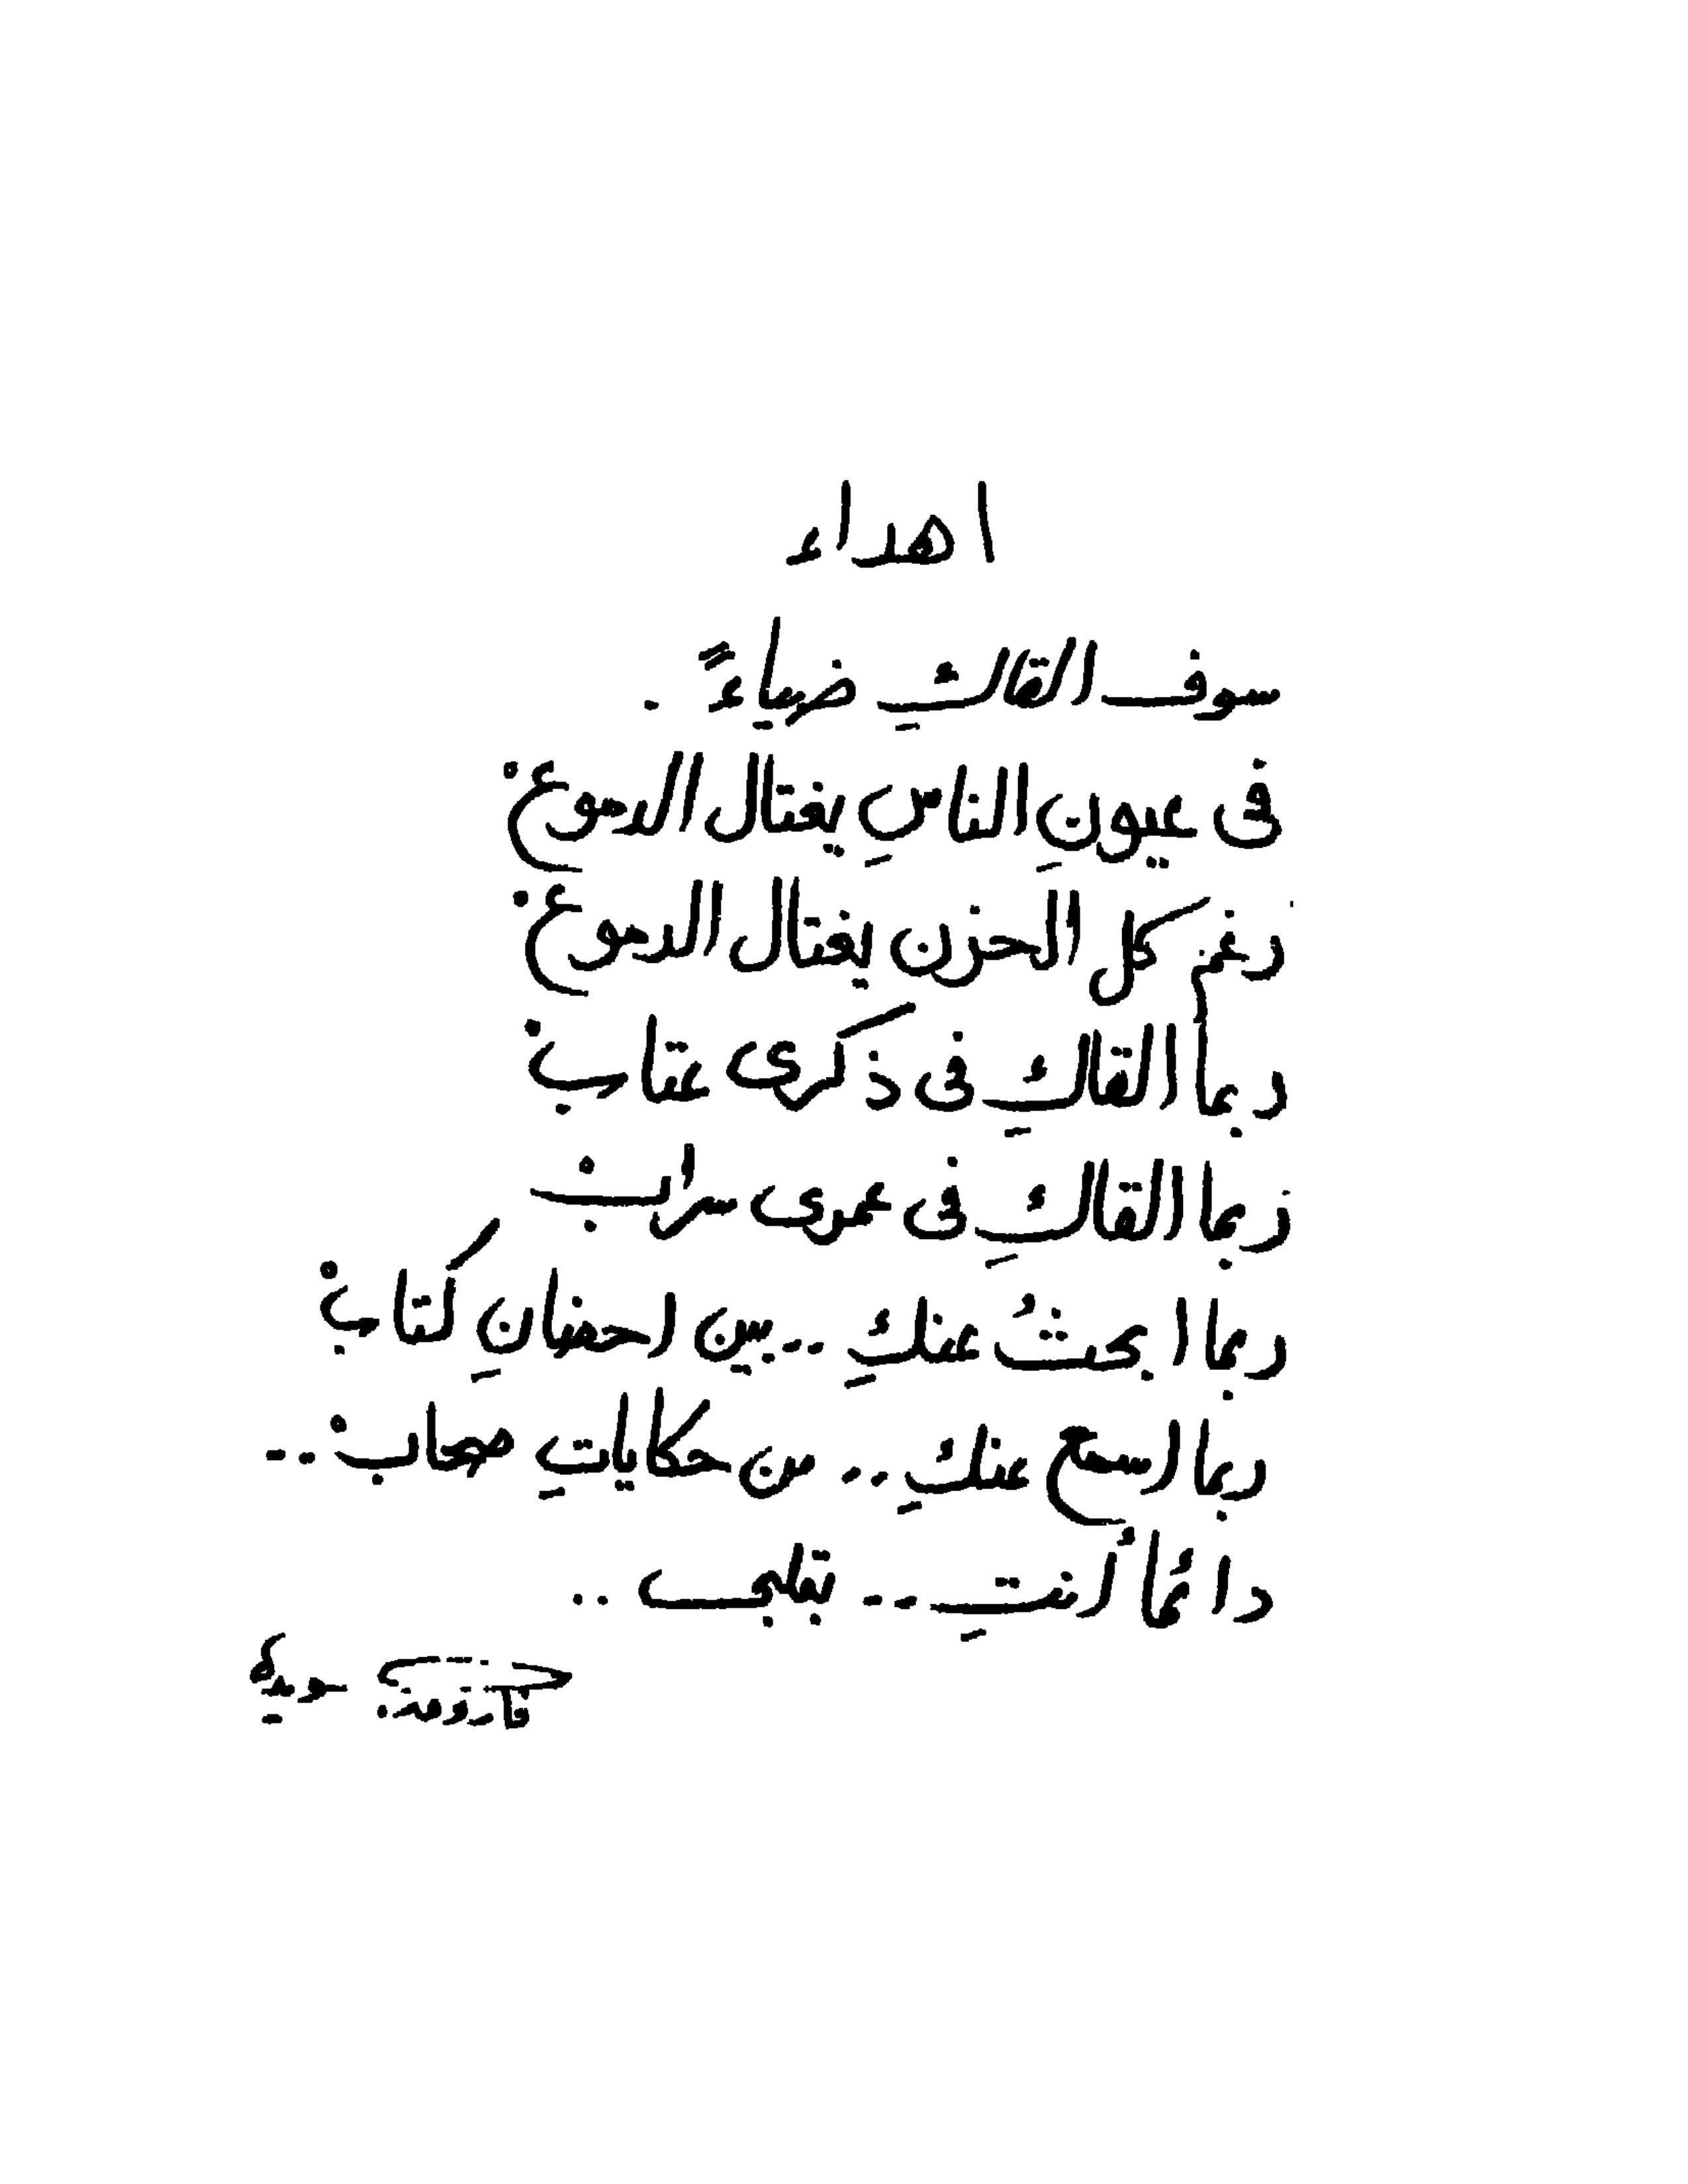 اهداء
سوف القاكِ ضياءً .
فى عيونِ الناسِ يغتال الدموعْ
رغم كل الحزن يغتال الدموعْ
ربما القاكِ فى ذكرى عتابْ
ربما القاكِ فى عمرى سرابْ
ربما ابحثُ عنكِ .. بين احضانِ كتابْ
ربما اسمع عنكِ .. من حكاياتِ صحابْ ..
دائمًا أنتِ .. بقلبى ..
فاروق جويدة